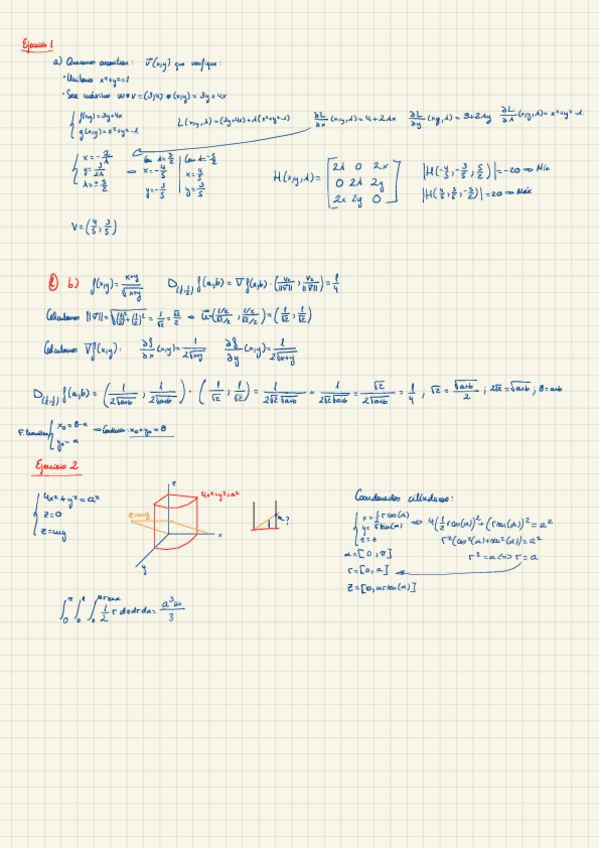 Ejercicio 1
a) Queremos encontrar: v⃗(x,y) que verifique:
· Unitario x²+y²=1
· Sea máximo w•v = (3,4)•(x,y) = 3y+4x
{ f(x,y)=3y+4x
g(x,y)=x²+y²-1
L(x,y,λ)=(3y+4x)+λ(x²+y²-1) ∂L/∂x (x,y,λ)=4+2λx ∂L/∂y (x,y,λ)=3+2λy ∂L/∂λ (x,y,λ)=x²+y²-1
{ x=-2/λ
y=-3/2λ
λ=±5/2
⇒ Con λ=5/2 x=-4/5 y=-3/5 | Con λ=-5/2 x=4/5 y=3/5
H(x,y,λ)= [2λ 0 2x
0 2λ 2y
2x 2y 0]
|H(-4/5,-3/5,5/2)|=-20 ⇒ Mín
|H(4/5,3/5,-5/2)|=20 ⇒ Máx
V=(4/5,3/5)
b) f(x,y)=x+y/√x+y D(½,½) f(a,b)=∇f(a,b)·(v₁/||v⃗||, v₂/||v⃗||)=1/4
Calculamos ||v⃗||=√(½)²+(½)²=1/√2=√2/2 ⇒ u⃗=(1/2/√2/2, 1/2/√2/2)=(1/√2,1/√2)
Calculamos ∇f(x,y): ∂f/∂x (x,y)=1/2√x+y ∂f/∂y (x,y)=1/2√x+y
D(½,½) f(a,b)=(1/2√a+b, 1/2√a+b)·(1/√2,1/√2)=1/2√2√a+b+1/2√2√a+b=√2/2√a+b=1/4; √2=√a+b/2; 2√2=√a+b; 8=a+b
{ x₀=8-α
y₀=α
⇒ x₀+y₀=8
Ejercicio 2
{ 4x²+y²=a²
z=0
z=my
z
z=my
4x²+y²=a²
x
y
?
Coordenadas cilíndricas:
{ x=½rcos(α)
y=rsen(α)
z=z
⇒ 4(½rcos(α))²+(rsen(α))²=a²
r²(cos²(α)+sen²(α))=a²
r²=a²⇔r=a
α=[0,π]
r=[0,a]
z=[0,mrsen(α)]
∫₀^π ∫₀^a ∫₀^mrsenα ½ r dzdrdα = a³m/3